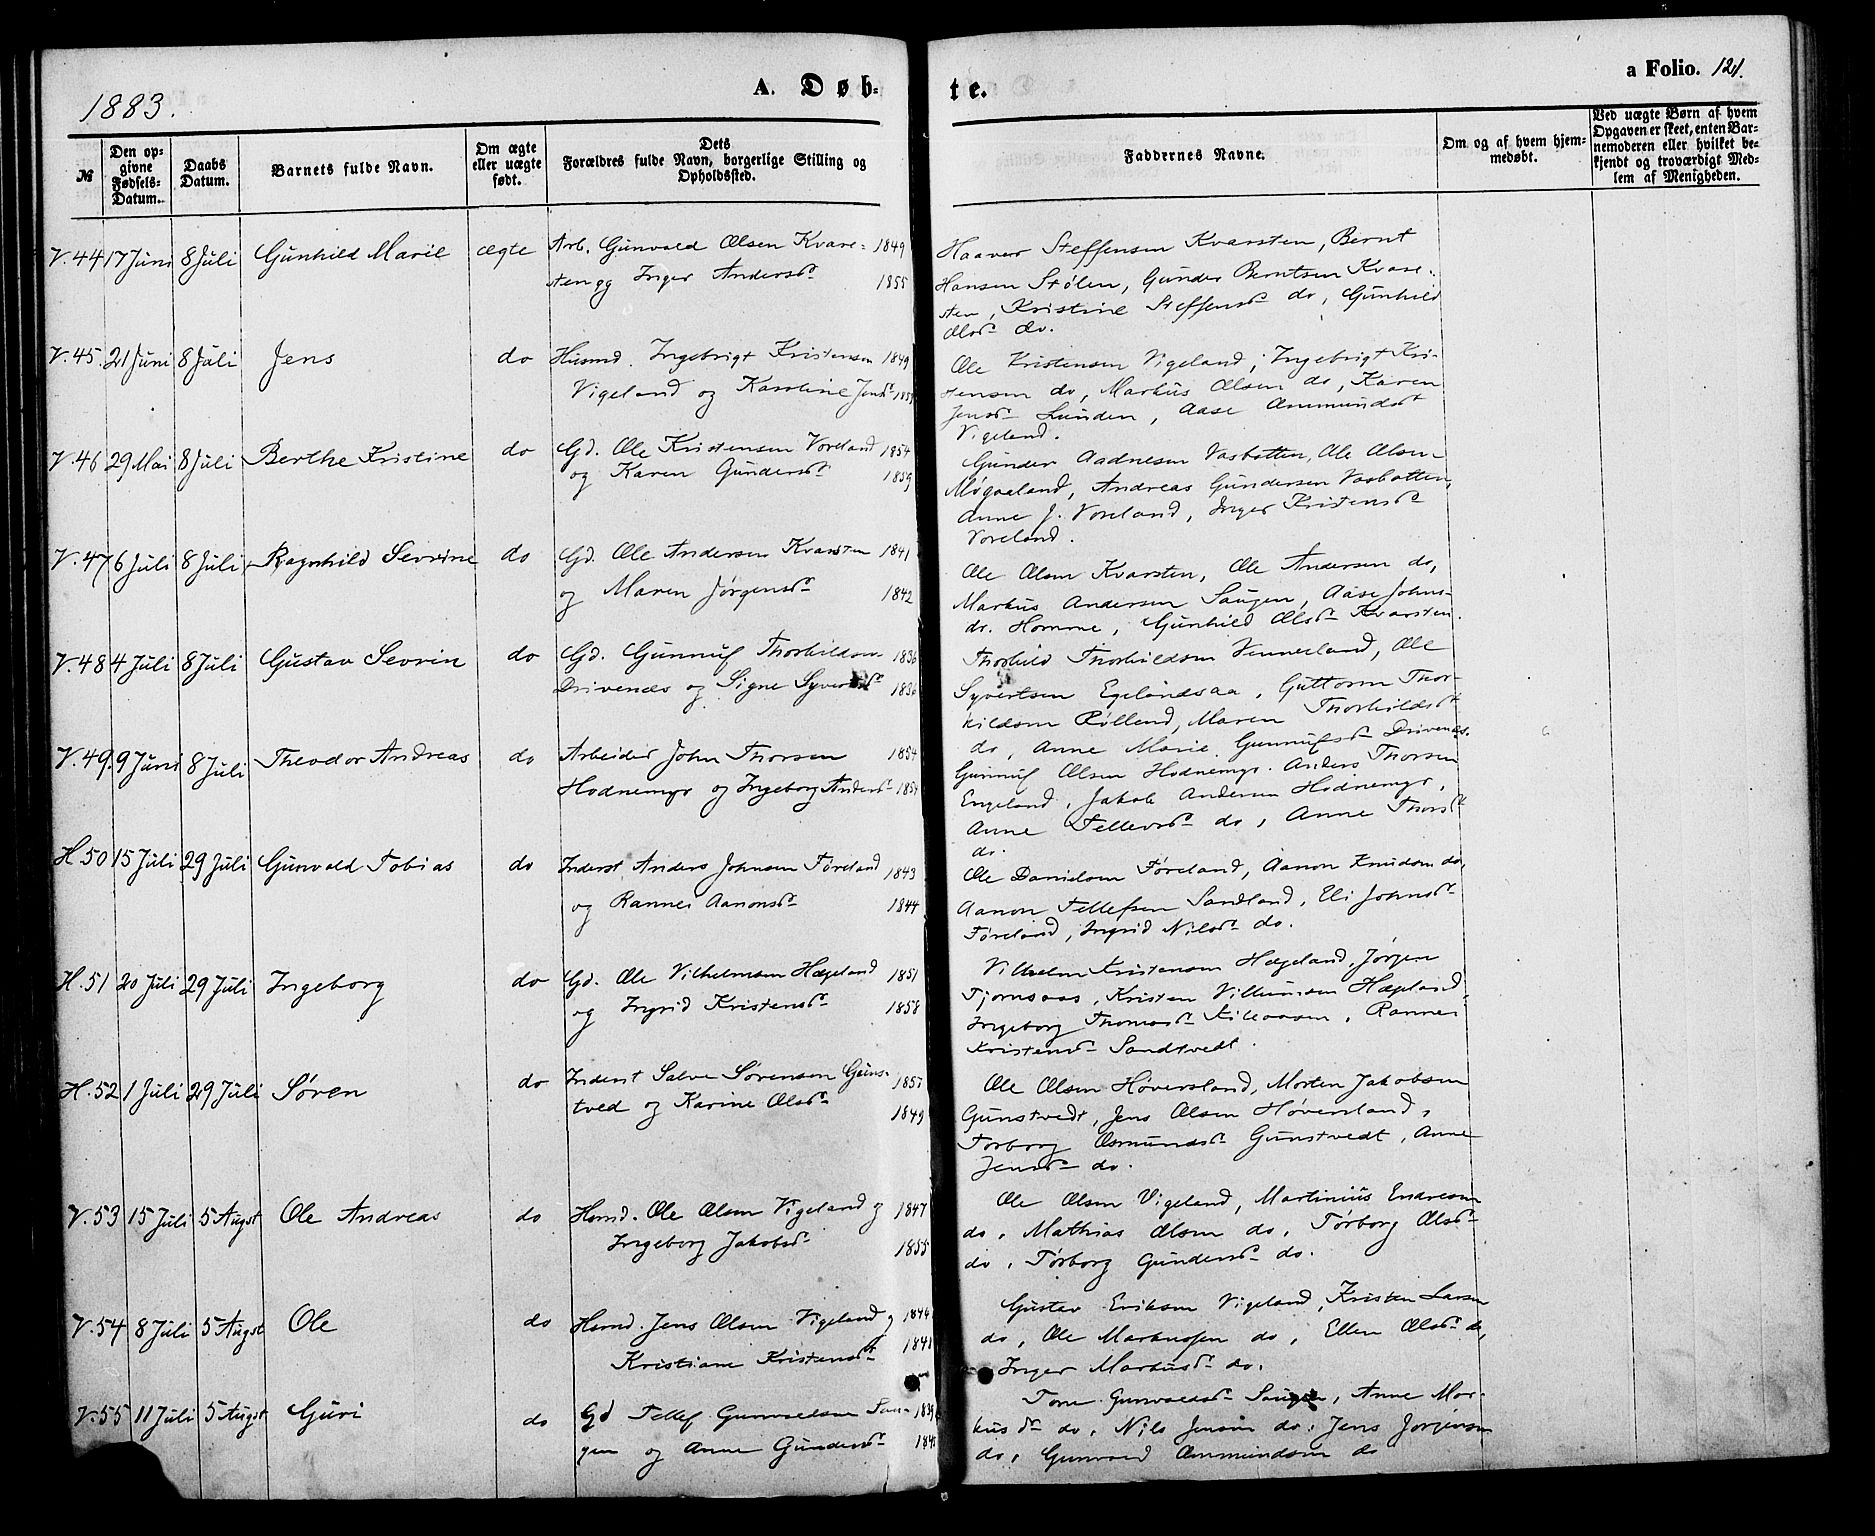 1883.
A. Døb-
te.
a Folio. 121.
№
Den op-
givne
Fødsels-
Datum.
Daabs
Datum.
Barnets fulde Navn.
Om ægte
eller uægte
født.
Dets
Forældres fulde Navn, borgerlige Stilling og
Opholdssted.
Faddernes Navne.
Om og af hvem hjem-
medøbt.
Ved uægte Børn af hvem
Opgaven er skeet, enten Bar-
nemoderen eller hvilket be-
kjendt og troværdigt Med-
lem af Menigheden.
V. 44 17 Juni 8 Juli Gunhild Marie ægte Arb. Gunvald Olsen Kvars- 1849
ten og Inger Andersd. 1855
Haaver Steffensen Kvarsten, Bernt
Hansen Stølen, Gunder Berntsen Kvars-
ten, Kristine Steffensd. do, Gunhild
Olsd. do.
V. 45. 21 Juni 8 Juli Jens do Husmd. Ingebrigt Kristensen 1849
Vigeland og Karoline Jensd.
Ole Kristensen Vigeland, Ingebrigt Kri-
stensen do, Markus Olsen do, Karen
Jensd. Lunden, Aase Ommundsd.
Vigeland.
V. 46 29 Mai 8 Juli Berthe Kristine do Gd. Ole Kristensen Voreland 1854
og Karen Gundersd. 1859
Gunder Aadnesen Vasbotten, Ole Olsen
Møgeland, Andreas Gundersen Vasbotten,
Anne J. Voreland, Inger Kristensd.
Voreland.
V. 47 6 Juli 8 Juli Ragnhild Sevrine do Gd. Ole Andersen Kvarsten 1841
og Maren Jørgensd. 1842
Ole Olsen Kvarsten, Ole Andersen do,
Markus Andersen Saugen, Aase Johns-
dr. Homme, Gunhild Olsd. Kvarsten.
V. 48 4 Juli 8 Juli Gustav Sevrin do Gd. Gunnuf Thorkildsen 1836
Drivenæs og Signe Syvertsd. 1836
Thorkild Thorkildsen Vennerland, Ole
Syvertsen Egelandsaa, Guttorm Thor-
kildsen Rølland, Maren Thorkildsd.
do, Anne Marie Gunnufsd. Drivenæs.
V. 49. 9 Juni 8 Juli Theodor Andreas do Arbeider John Thorsen 1854
Hodnemyr og Ingeborg Andersd.
Gunnuf Olsen Hodnemyr. Anders Thorsen
Engeland, Jakob Andersen Hodnemyr,
Anne Tellevsd. do, Anne Thorsd.
do.
H. 50 15 Juli 29 Juli Gunvald Tobias do Inderst Anders Johnsen Føreland 1843
og Rannei Aanonsd. 1844
Ole Danielsen Føreland, Aanon Knudsen do,
Aanon Tellefsen Sandland, Eli Johnsd.
Føreland, Ingrid Nilsd. do.
H. 51 20 Juli 29 Juli Ingeborg do Gd. Ole Vilhelmsen Hægeland 1851
og Ingrid Kristensd. 1858
Vilhelm Kristensen Hægeland, Jørgen
Tjomsaas, Kristen Villumsen Hægeland,
Ingeborg Thomasd. Kileaasen, Rannei
Kristensd. Sandtvedt.
H. 52 1 Juli 29 Juli Søren do Inderst Salve Sørensen Guns-
tved og Karine Olsd. 1849
Ole Olsen Høversland, Morten Jakobsen
Gunstvedt, Jens Olsen Høversland,
Torborg Osmundsd. Gunstvedt, Anne
Jensd. do.
V. 53 15 Juli 5 Augst Ole Andreas do Husmd. Ole Olsen Vigeland og 1847
Ingeborg Jakobsd. 1855
Ole Olsen Vigeland, Martinius Endresen
do, Mathias Olsen do, Tørborg Olsd.
do, Tørborg Gundersd. do.
V. 54 8 Juli 5 Augst Ole do Husmd. Jens Olsen Vigeland og 1844
Kristiane Kristensd. 1841
Gustav Eriksen Vigeland, Kristen Larsen
do, Ole Markussen do, Ellen Olsd. do,
Inger Markusd. do.
V. 55 11 Juli 5 Augst Guri do Gd Tellef Gunvaldsen Sau- 1839
gen og Anne Gundersd.
Tone Gunvaldsd. Saugen, Anne Mar-
kusd. do, Nils Jensen do, Jens Jørgensen
do, Gunvald Ommundsen do